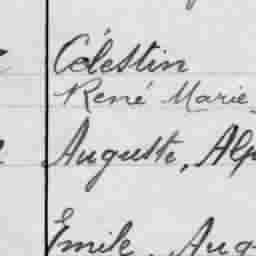 Célestin
René Marie
Auguste, Alp
Emile, Aug